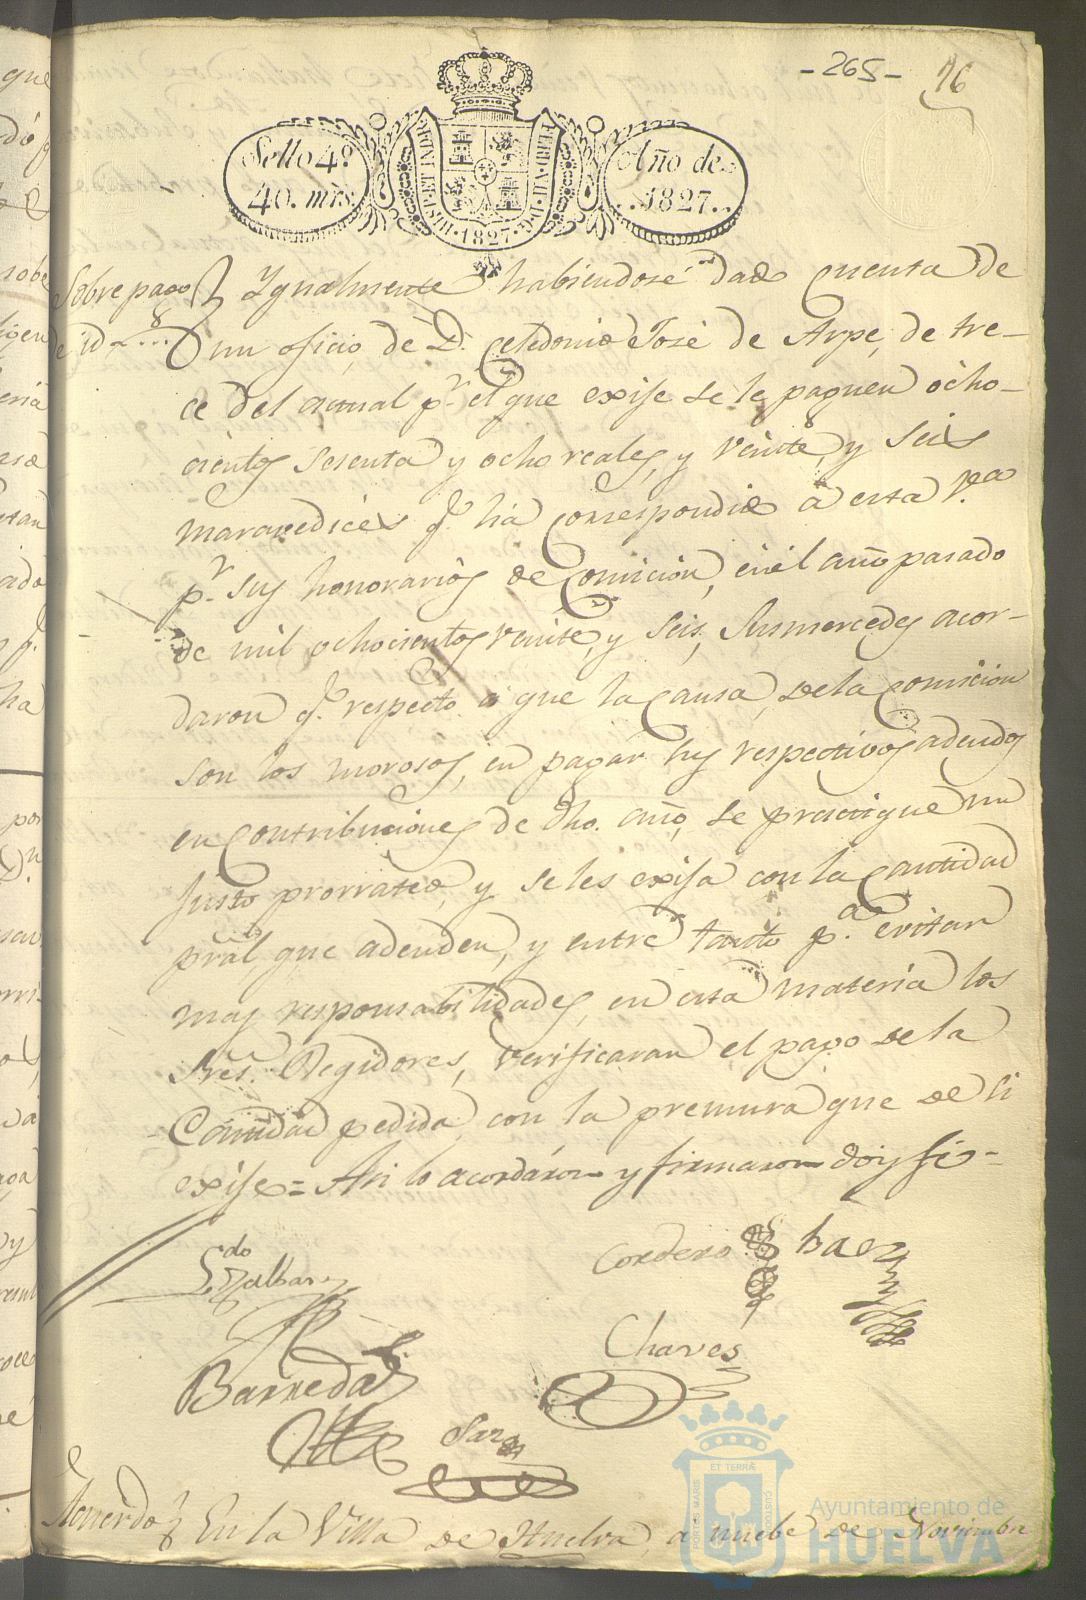 -265-
76
Sello 4º
40. mrs.
HISP. ET IND. R.
FERD. VII. D. G.
1827
Año de
1827
Sobre pago
de id
Ygualmente habiendose dado cuenta de
un oficio de D. Celedonio José de Arpe, de tre-
ce del actual pr. el que exije se le paguen ocho-
cientos sesenta y ocho reales, y veinte, y seis
maravedices q.e ha correspondido á esta V.a
pr. sus honorarios de Comicion, en el año pasado
de mil ochocientos veinte, y seis, Susmercedes acor-
daron q.e respecto a que la Causa, de la Comicion
son los morosos, en pagar sus respectivos adeudos
en Contribuciones de dho. año, se practique un
justo prorrateo, y se les exija con la Cantidad
pral que adeuden, y entre tanto p.a evitar
mas responsabilidades, en esta materia los
Sres. Regidores, verificaran el pago de la
Cantidad pedida, con la premura que de si
exije= Asi lo acordáron y firmaron doy fé-
Cordero
Baez
Chaves
Barreda
Acuerdo
En la Villa de Huelva, a nuebe de Noviembre
PORTUS MARIS
ET TERRÆ
CUSTODIA
Ayuntamiento de
HUELVA